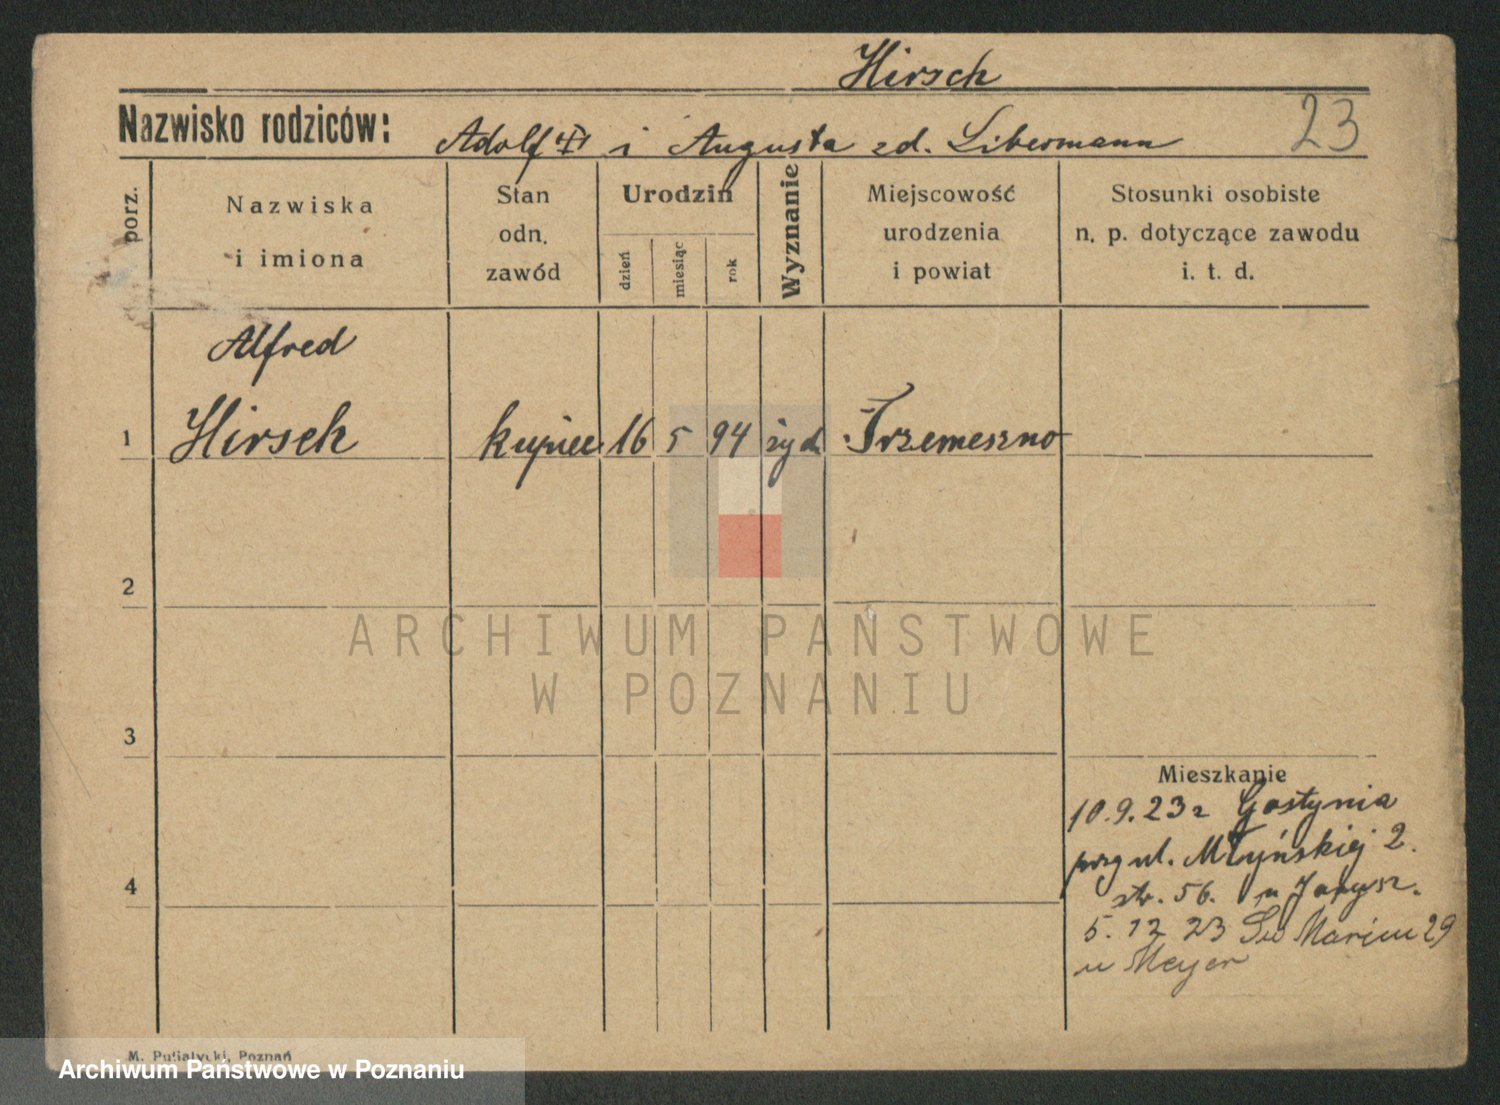 Hirsch
Nazwisko rodziców: Adolf i Augusta zd. Libermann 23
porz.
Nazwiska
i imiona
Stan
odn.
zawód
Urodzin
dzień
miesiąc
rok
Wyznanie
Miejscowość
urodzenia
i powiat
Stosunki osobiste
n. p. dotyczące zawodu
i. t. d.
Alfred
1 Hirsch kupiec 16 5 94 żyd. Trzemeszno
2
ARCHIWUM PAŃSTWOWE
W POZNANIU
3
Mieszkanie
10.9.23 z Gostynia
przy ul. Młyńskiej 2.
4
str. 56. u
5. 12 23 Św Marcin 29
u Meyer
M. Putiatycki, Poznań
Archiwum Państwowe w Poznaniu